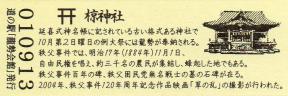 椋神社
延喜式神名帳に記されている古い格式ある神社で
10月第2日曜日の例大祭には龍勢が奉納される。
秩父事件では、明治17年(1884年)11月1日、
自由民権を唱え、約三千名の農民が集結し、蜂起した地でもある。
秩父事件百年の碑、秩父困民党無名戦士の墓の石碑が在る。
2004年、秩父事件120周年記念作品映画「草の乱」の撮影が行われた。
010913
道の駅「龍勢会館」発行